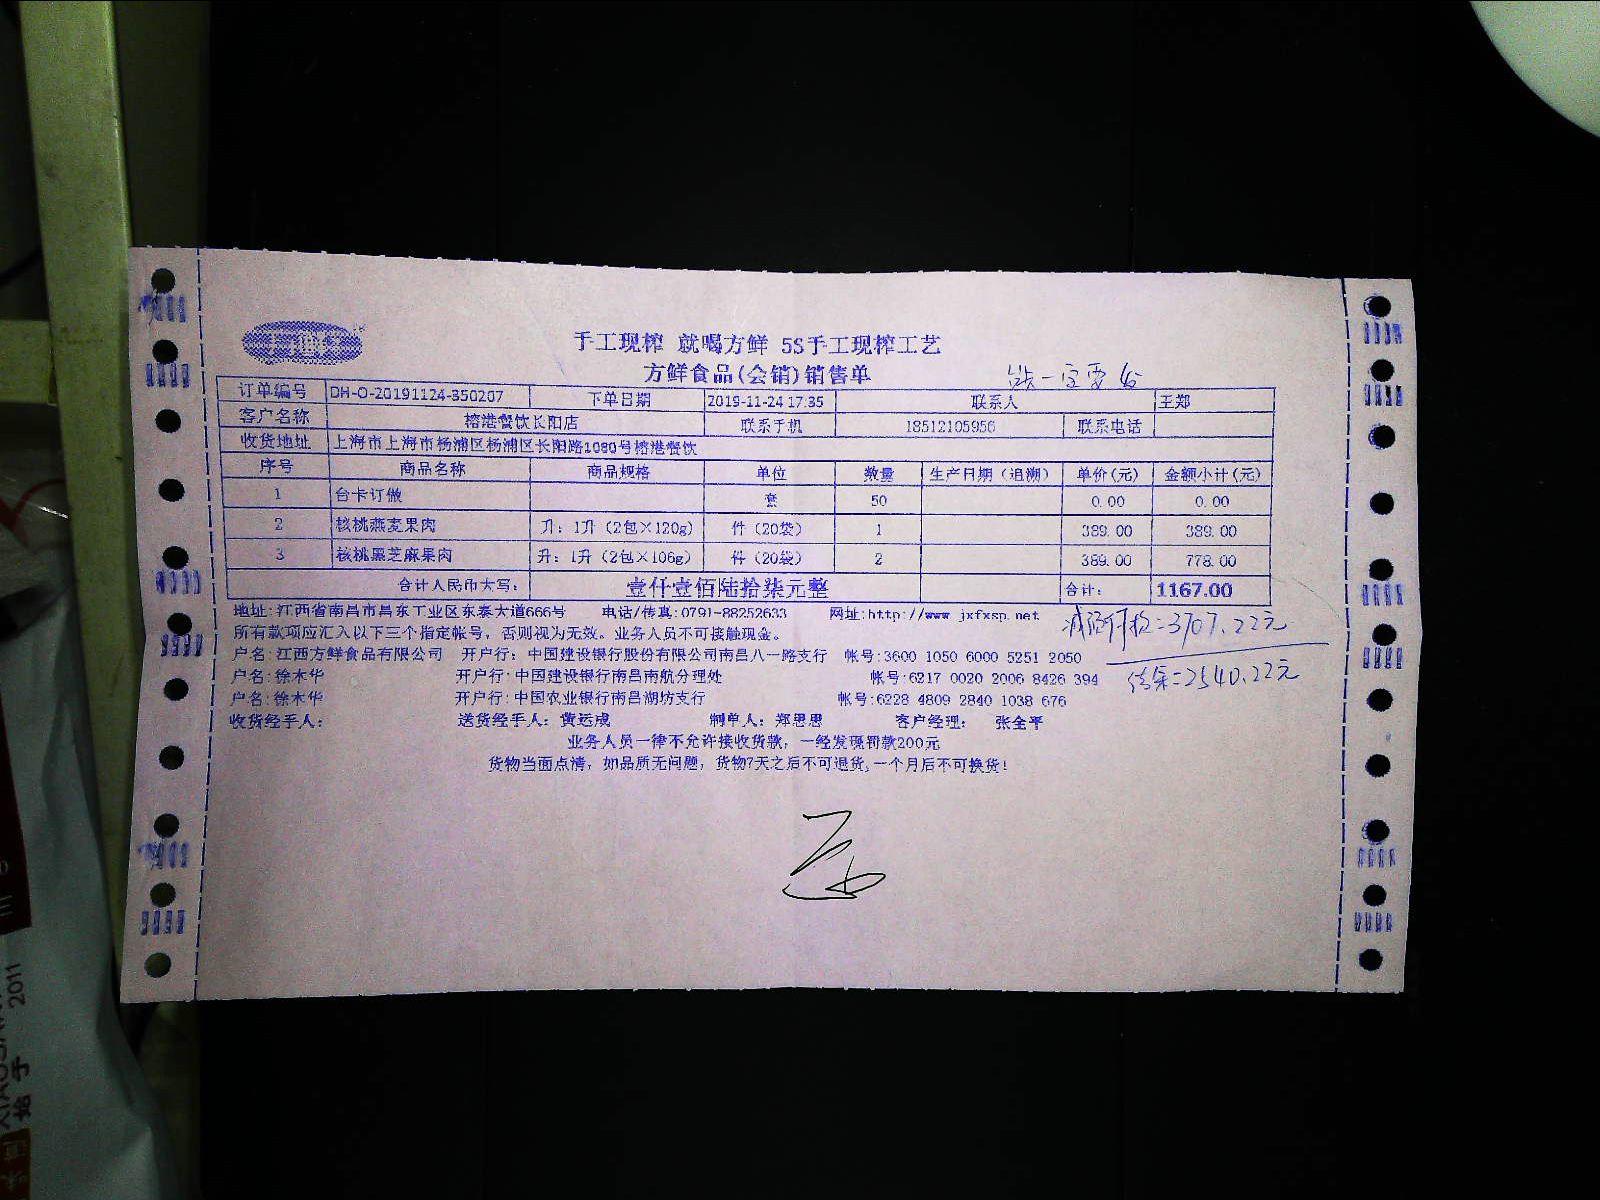 手工现榨 就喝方鲜 5S手工现榨工艺
方鲜食品(会销)销售单
订单编号 DH-O-20191124-350207 下单日期 2019-11-24 17:35 联系人 王郑
客户名称 榕港餐饮长阳店 联系手机 18512105956 联系电话
收货地址 上海市上海市杨浦区杨浦区长阳路1080号榕港餐饮
序号 商品名称 商品规格 单位 数量 生产日期（追溯） 单价(元) 金额小计(元)
1 台卡订做 套 50 0.00 0.00
2 核桃燕麦果肉 升：1升（2包×120g） 件（20袋） 1 389.00 389.00
3 核桃黑芝麻果肉 升：1升（2包×106g） 件（20袋） 2 389.00 778.00
合计人民币大写： 壹仟壹佰陆拾柒元整 合计： 1167.00
地址:江西省南昌市昌东工业区东泰大道666号 电话/传真:0791-88252633 网址:http://www.jxfxsp.net
3707.22元
所有款项应汇入以下三个指定帐号，否则视为无效。业务人员不可接触现金。
户名:江西方鲜食品有限公司 开户行：中国建设银行股份有限公司南昌八一路支行 帐号:3600 1050 6000 5251 2050
=2540.22元
户名:徐木华 开户行:中国建设银行南昌南航分理处 帐号:6217 0020 2006 8426 394
户名:徐木华 开户行:中国农业银行南昌湖坊支行 帐号:6228 4809 2840 1038 676
收货经手人： 送货经手人：黄运成 制单人：郑思思 客户经理： 张全平
业务人员一律不允许接收货款，一经发现罚款200元
货物当面点清，如品质无问题，货物7天之后不可退货,一个月后不可换货！
2011